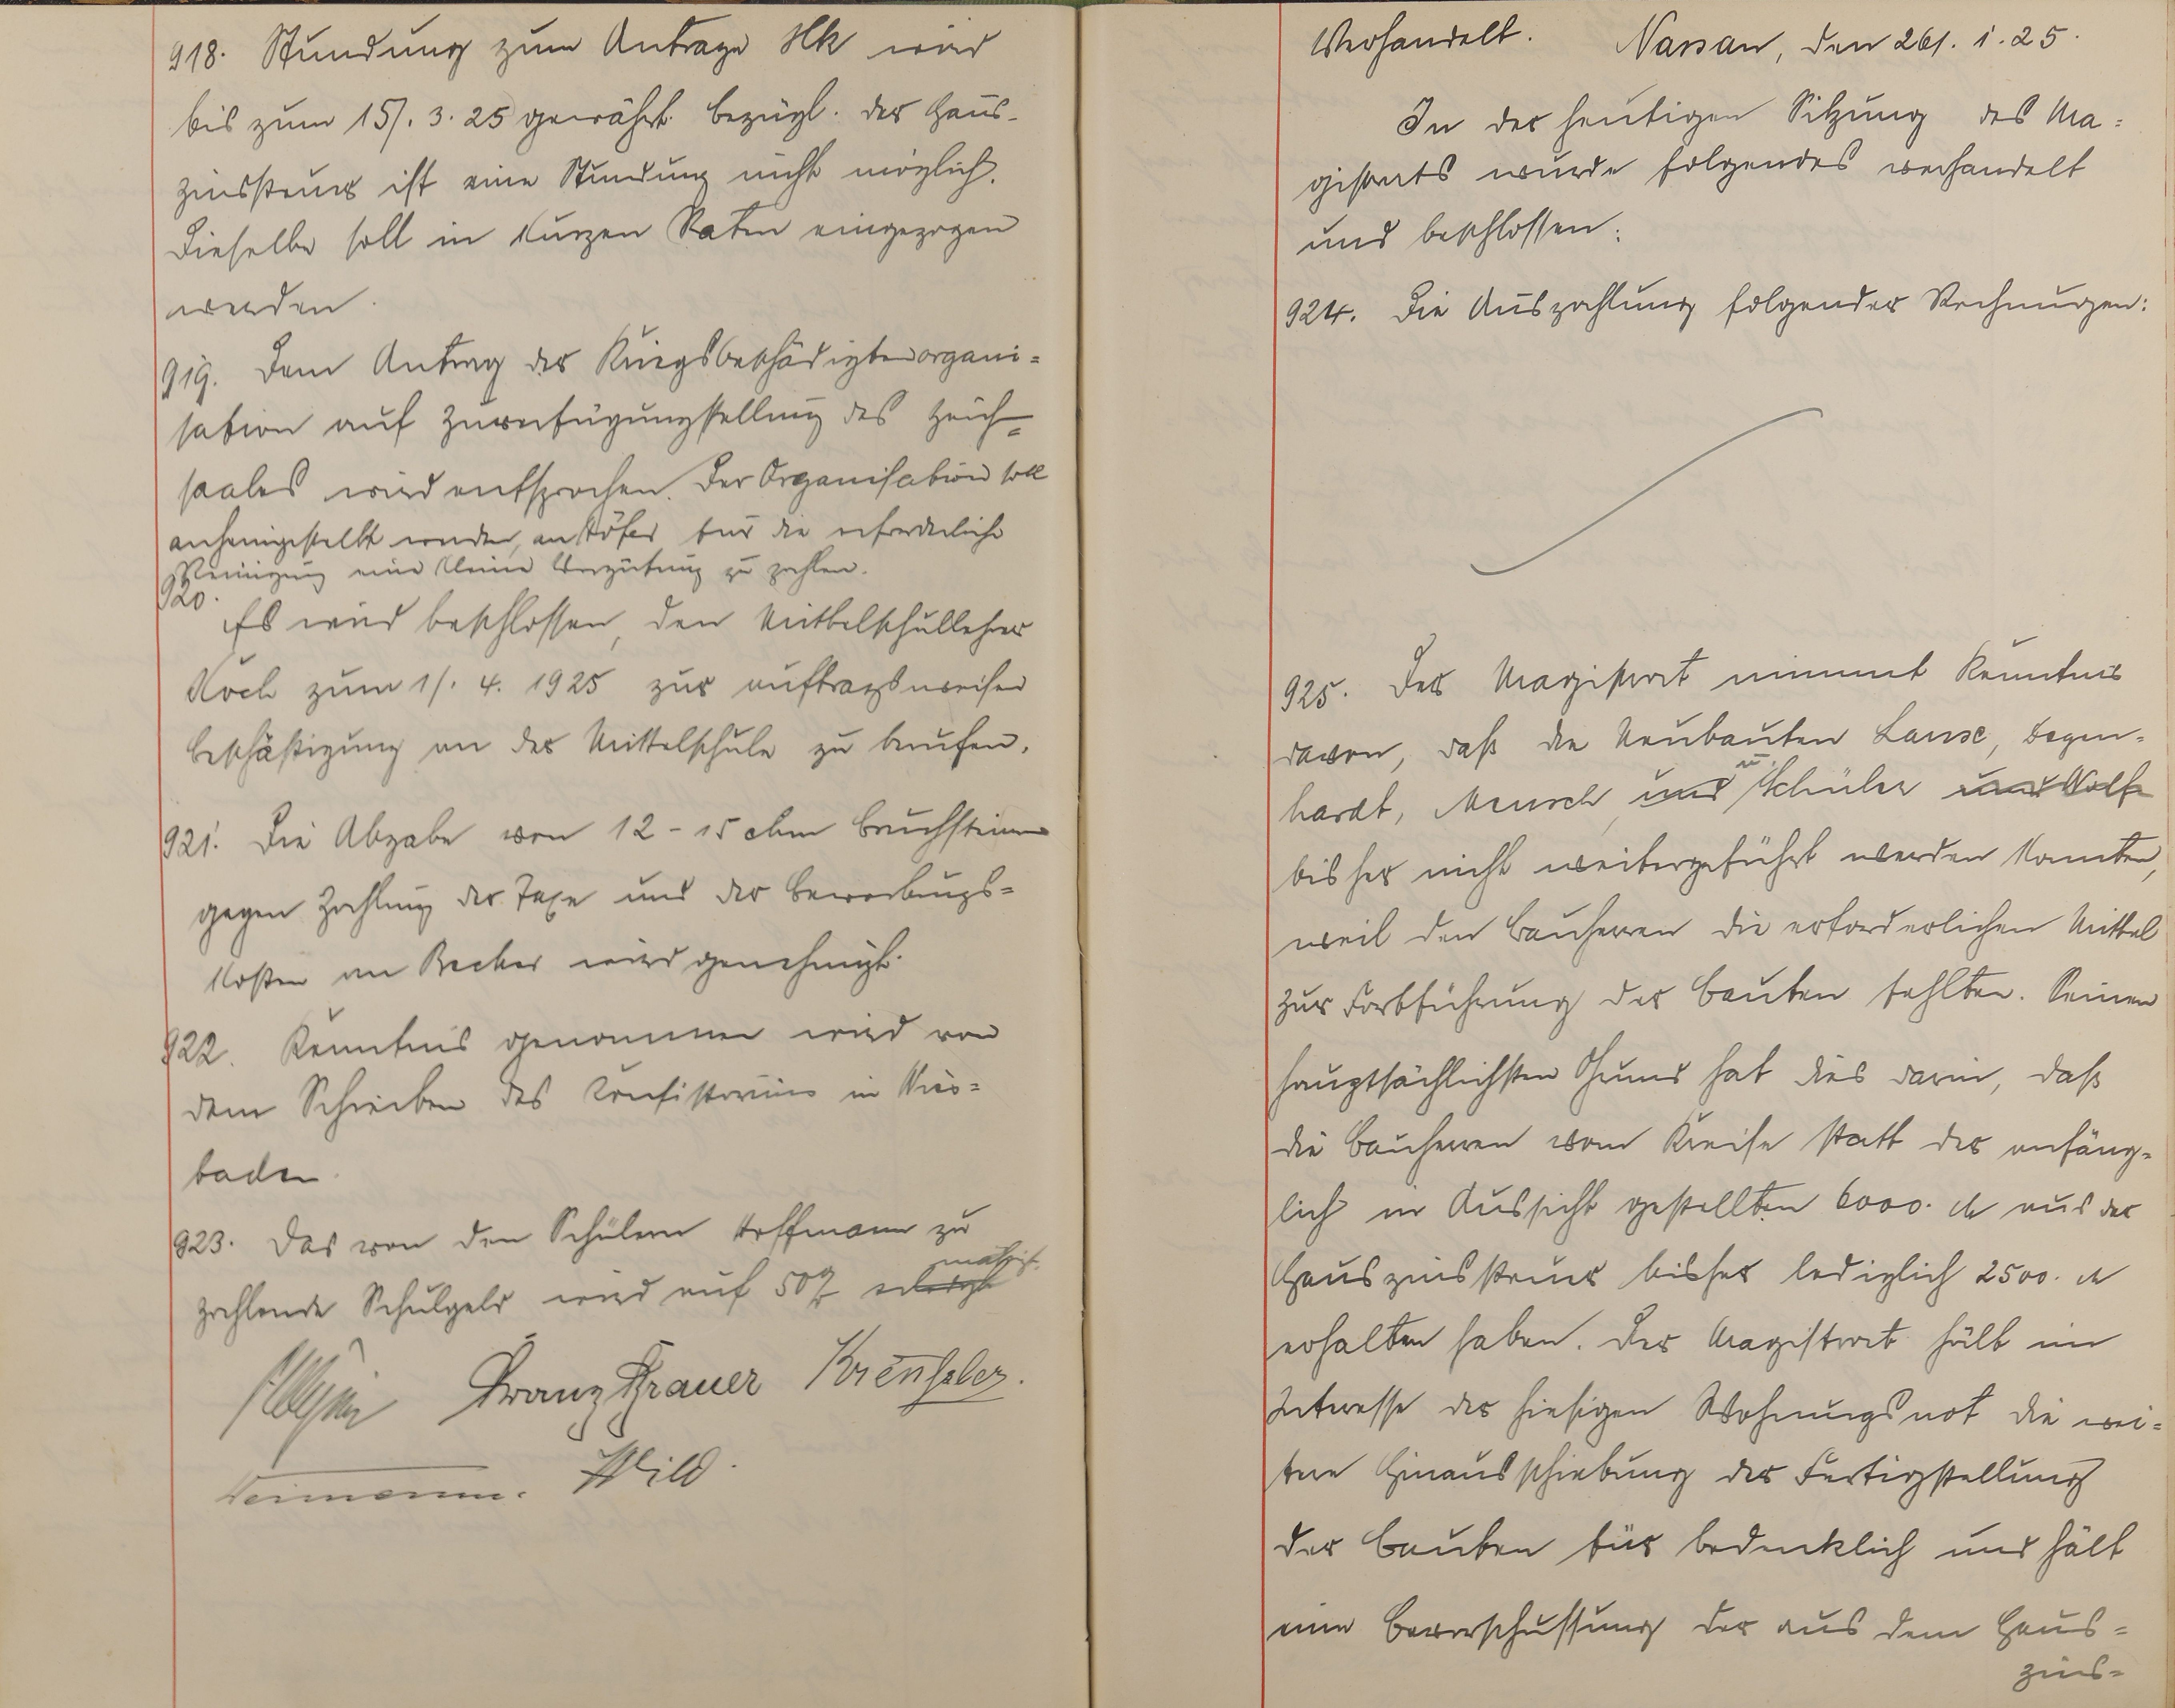 918. Stundung zum Antrage Ilk wird
bis zum 15/. 3. 25 gewährt. bezügl. der Haus-
zinssteuer ist eine Stundung nicht möglich.
Dieselbe soll in kurzen Raten eingezogen
werden.
919. Dem Antrag der Kriegsbeschädigtenorgani=
sation auf Zurverfügungstellung des Zeich=
saales wird entsprochen. Der Organisation soll
anheimgestellt werden, an Höfer für die erforderliche
Reinigung eine kleine Vergütung zu zahlen.
920.
Es wird beschlossen, den Mittelschullehrer
Koch zum 1/. 4. 1925 zur auftragsweisen
Beschäftigung an der Mittelschule zu berufen.
921. Die Abgabe von 12 - 15 cbm Bruchsteine
gegen Zahlung der Taxe und der Bewerbungs=
kosten an Becker wird genehmigt.
922. Kenntnis genommen wird von
dem Schreiben des Konsistoriums in Wies=
baden.
923. Das von den Schülern Hoffmann zu
zahlende Schulgeld wird auf 50% ermäßigt.
Franz Brauer
Wild.
Verhandelt. Nassau, den 26/. 1. 25.
In der heutigen Sitzung des Ma=
gistrats wurde folgendes verhandelt
und beschlossen:
924. Die Auszahlung folgender Rechnungen:
925. Der Magistrat nimmt Kenntnis
davon, daß die Neubauten Lanse, Degen=
hardt, Mensch, und u. Schüler und Wolf
bisher nicht weitergeführt werden konnten,
weil den Bauherren die erforderlichen Mittel
zur Fortführung der Bauten fehlten. Seinen
hauptsächlichsten Grund hat dies darin, daß
die Bauherren vom Kreise statt der anfäng=
lich in Aussicht gestellten 6000. M aus der
Hauszinssteuer bisher lediglich 2500. M
erhalten haben. Der Magistrat hält im
Interesse der hiesigen Wohnungsnot die wei=
tere Hinausschiebung der Fertigstellung
der Bauten für bedenklich und hält
eine Bevorschussung der aus dem Haus=
zins=